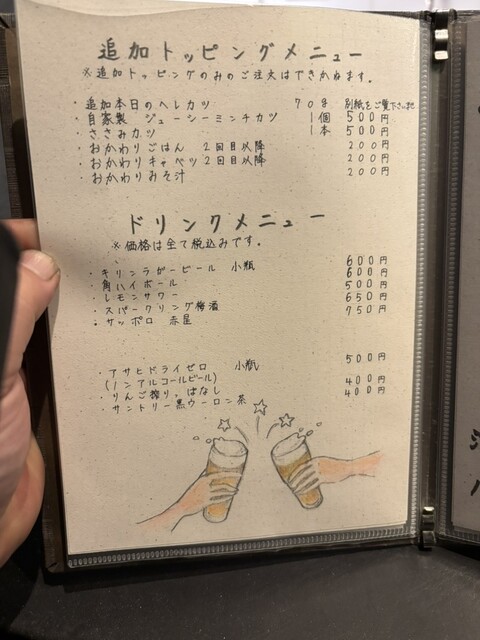 追加トッピングメニュー
※追加トッピングのみのご注文はできかねます。
・追加本日のヘレカツ 70g 別紙をご覧下さいませ
・自家製 ジューシーミンチカツ 1個 500円
・ささみカツ 1本 500円
・おかわりごはん 2回目以降 200円
・おかわりキャベツ 2回目以降 200円
・おかわりみそ汁 200円
ドリンクメニュー
※価格は全て税込みです。
・キリンラガービール 小瓶 600円
・角ハイボール 600円
・レモンサワー 500円
・スパークリング梅酒 650円
・サッポロ 赤星 750円
・アサヒドライゼロ 小瓶 500円
(ノンアルコールビール)
・りんご搾りっぱなし 400円
・サントリー黒ウーロン茶 400円